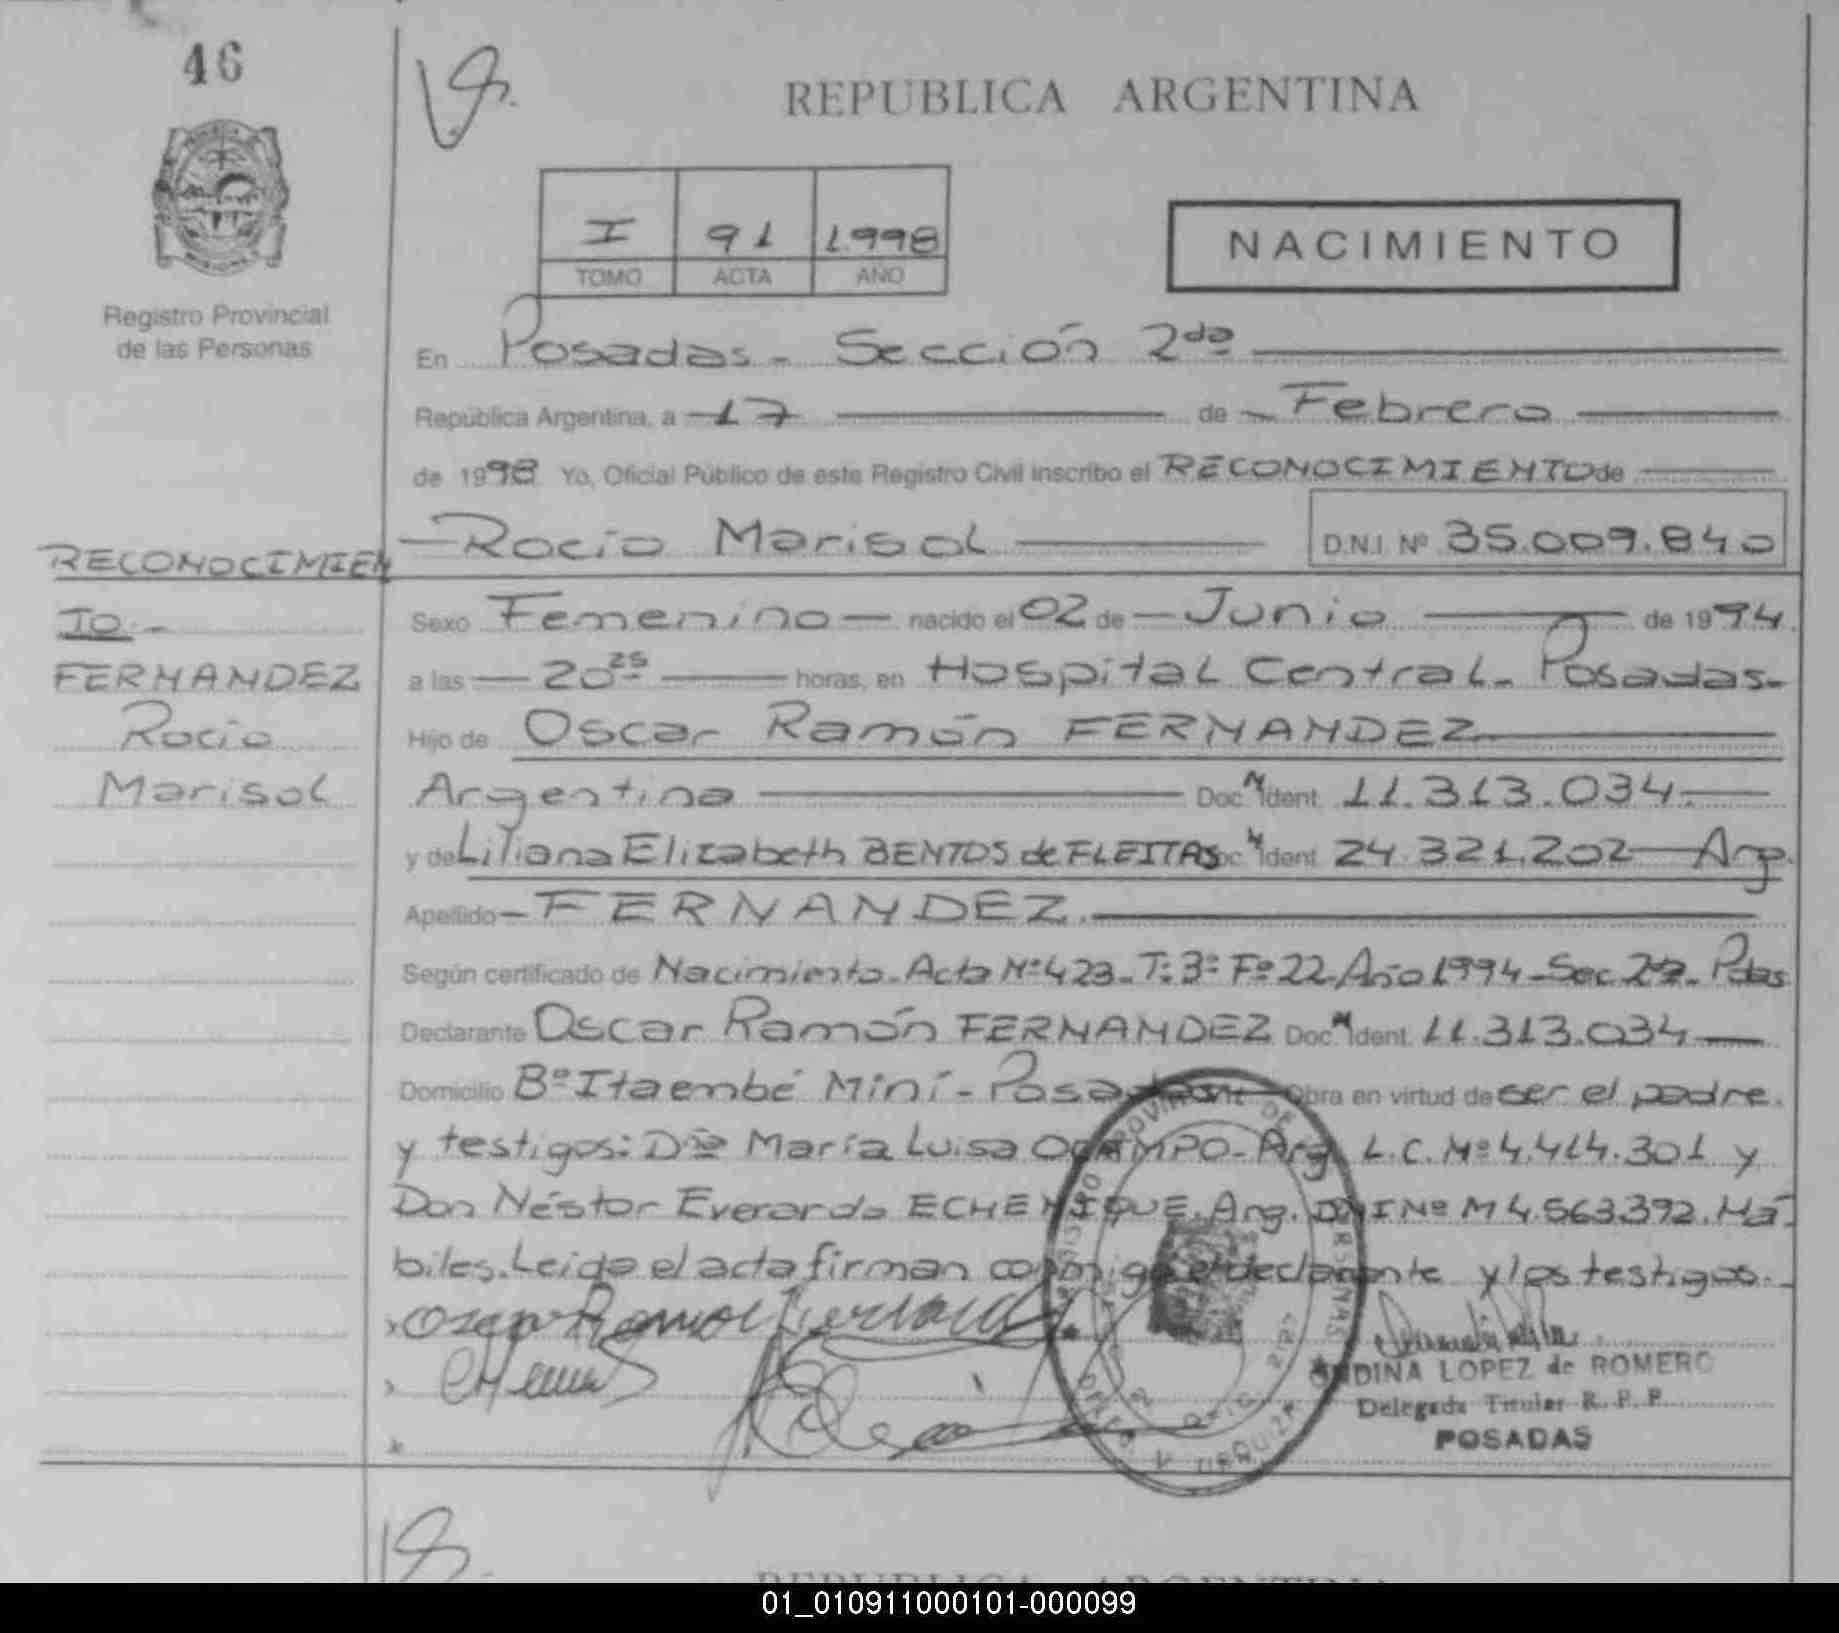 46
REPUBLICA ARGENTINA
I 91 1.998
TOMO ACTA AÑO
NACIMIENTO
Registro Provincial
de las Personas
En Posadas - Sección 2da
República Argentina, a 17 de Febrero
de 1998 Yo, Oficial Público de este Registro Civil inscribo el RECONOCIMIENTO de
Rocío Marisol D.N.I. Nº 35.009.840
RECONOCIMIEN
TO.-
FERNANDEZ
Rocío
Marisol
Sexo Femenino nacido el 02 de Junio de 1994
a las 20 25 horas, en Hospital Central - Posadas-
Hijo de Oscar Ramón FERNANDEZ
Argentina Doc. N Ident. 11.313.034.
y de Liliana Elizabeth BENTOS de FLEITAS Doc. N Ident. 24.321.202 Arg.
Apellido FERNANDEZ.
Según certificado de Nacimiento - Acta Nº 423 - T: 3º Fº 22 - Año 1994 - Sec. 2da - Pdas
Declarante Oscar Ramón FERNANDEZ Doc. N Ident. 11.313.034
Domicilio Bº Itaembé Miní - Posadas Obra en virtud de ser el padre.
y testigos: Dña María Luisa OCAMPO - Arg. L.C. Nº 4.414.301 y
Don Néstor Everardo ECHENIQUE. Arg. DNI Nº M 4.563.392. Há-
biles. Leída el acta firman conmigo el declarante y los testigos.-
Oscar Ramon Fernandez
ANDINA LOPEZ de ROMERO
Delegada Titular R. P. P.
POSADAS
REPUBLICA ARGENTINA
01_010911000101-000099